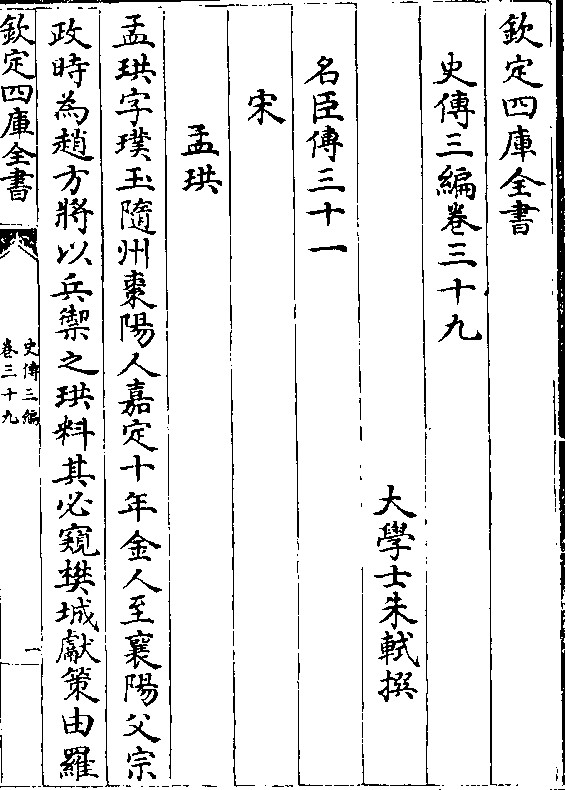 欽定四庫全書
史傳三編卷三十九
大學士朱軾撰
名臣傳三十一
宋
孟珙
孟珙字璞玉隨州棗陽人嘉定十年金人至襄陽父宗
政時為趙方將以兵禦之珙料其必窺樊城獻策由羅
欽定四庫全書
史傳三編
卷三十九
一